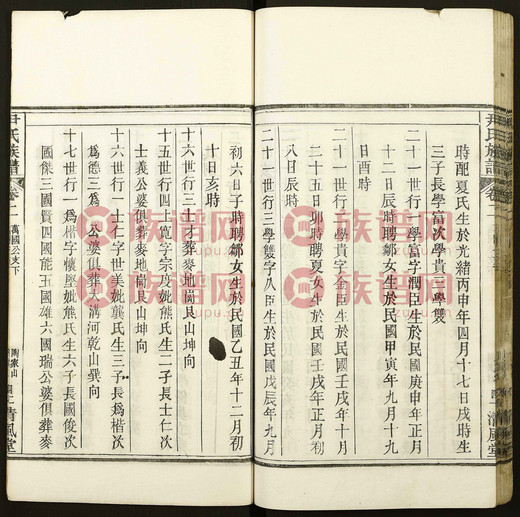 尹氏族譜
卷二
清風堂
時配夏氏生於光緒丙申年四月十七日戌時生
三子長學富次學貴三學雙
二十一世行一學富字潤臣生於民國庚申年三月
十二日辰時聘鄒女生於民國甲寅年九月十九
日酉時
二十一世行二學貴字金臣生於民國壬戌年十月
二十五日卯時聘夏女生於民國壬戌年正月
八日辰時
二十一世行三學雙字八臣生於民國戊辰年九月
初六日子時聘鄒女生於民國乙丑年十二月初
十日亥時
十六世行三士才葬麥地崗艮山坤向
十五世行四上寬字宗乃妣熊氏生二子長士仁次
士義公婆俱葬麥地崗艮山坤向
十六世行一士仁字世美妣龔氏生三子長為楷次
為德三為 公婆俱葬大溝河乾山巽向
十七世行一為楷字懷 妣熊氏生六子長國俊次
國傑三國賢四國能五國雄六國瑞公婆俱葬麥
尹氏族譜
卷二
萬國公支下
清風堂
族谱网
族谱网
族谱网
族谱网